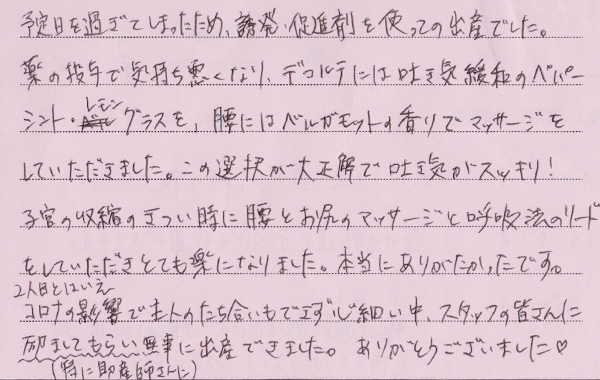 予定日を過ぎてしまったため、誘発・促進剤を使っての出産でした。
薬の投与で気持ち悪くなり、デコルテには吐き気緩和のペパー
ミント・レモングラスを、腰にはベルガモットの香りでマッサージを
していただきました。この選択が大正解で吐き気がスッキリ！
子宮の収縮のきつい時に腰とお尻のマッサージと呼吸法のリード
をしていただきとても楽になりました。本当にありがたかったです。
2人目とはいえ
コロナの影響で主人のたち合いもできず心細い中、スタッフの皆さんに
励ましてもらい無事に出産できました。ありがとうございました♡
(特に助産師さんに)